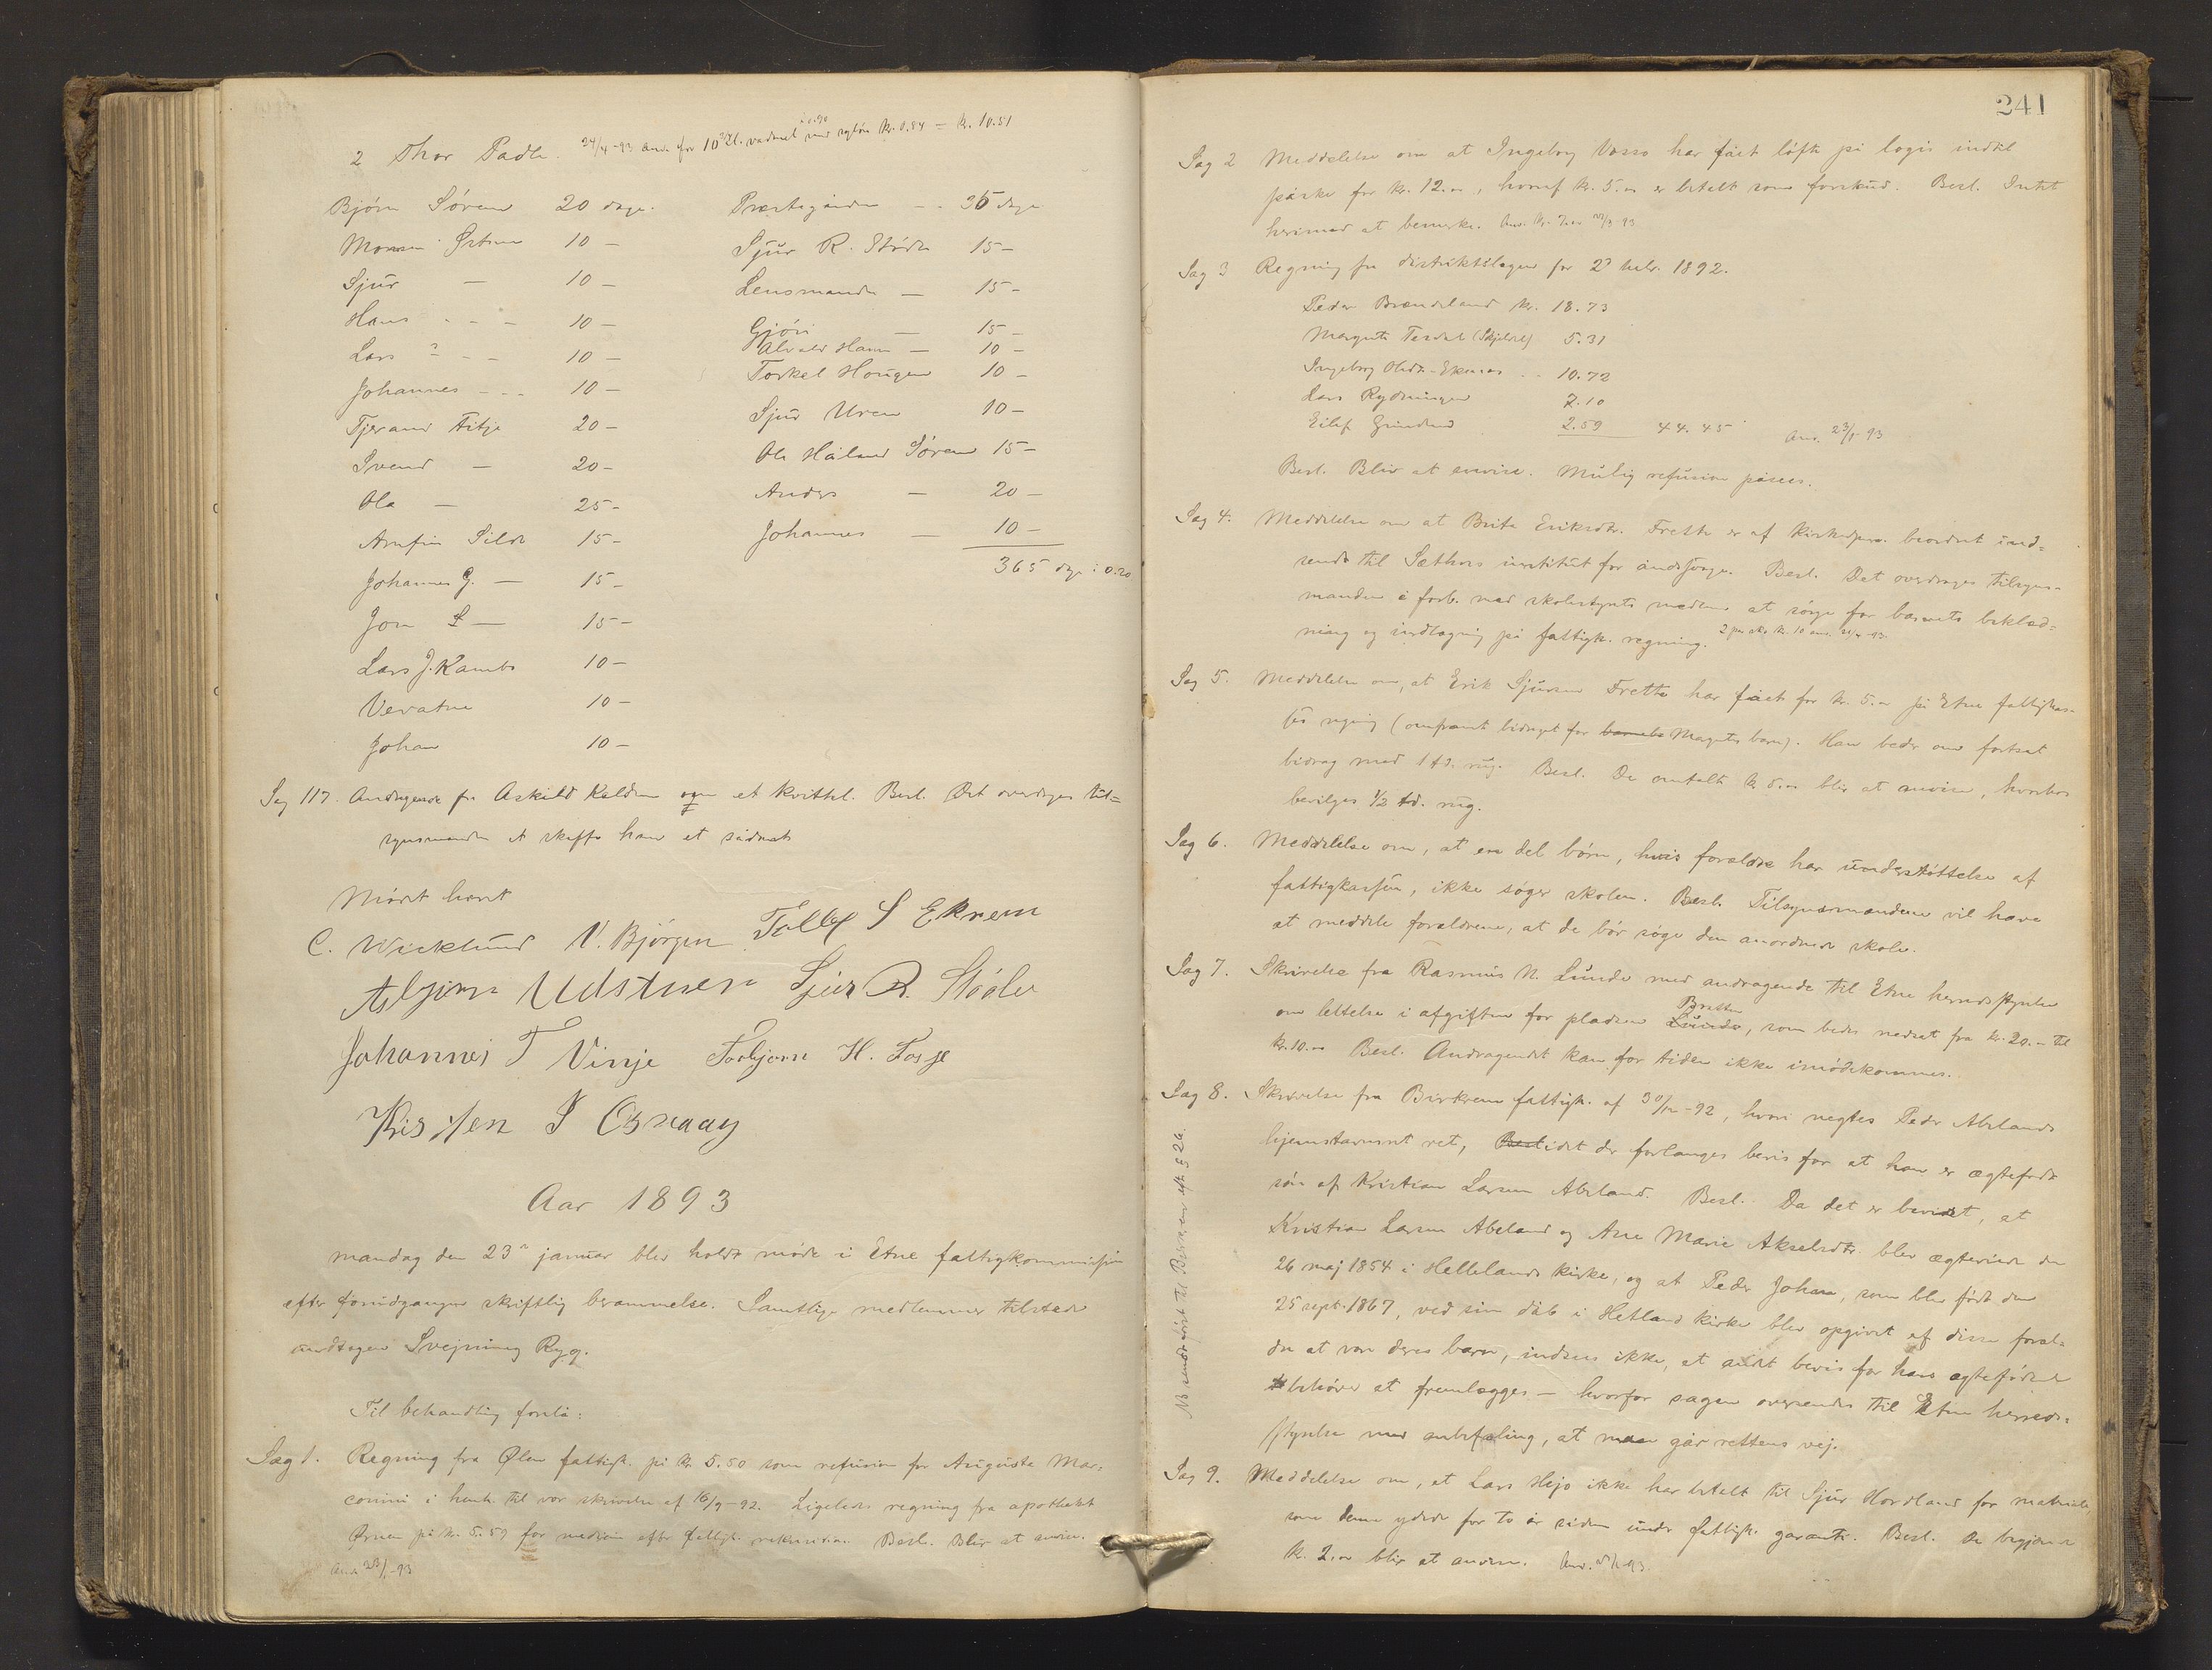 2 Thor Padle. 24/4-93 anv. for 10 vadmel med sytøi kr. 0.84 = kr. 10.51
Bjørn Sørem 20 dage.
10 —
Sjur — 10 —
Hans - - - 10 —
Lars - - 10 —
Johannes - - - 10 —
Tjerand Fitje 20 —
Svend — 20 —
Ola — 25 —
Arnfin Silde 15 —
Johannes G. — 15 —
Jon — 15 —
Lars J. Kambe 10 —
Vevatne 10 —
Johan 10 —
Præstegården - - 35 dage
Sjur R. Støde 15 —
Lensmanden — 15 —
15 —
10 —
Torkel Hougen 10 —
Sjur Uren 10 —
Ole Håland Sørem 15 —
Anders — 20 —
Johannes — 10 —
365 dage à 0.20
Sag 117. Andragende fra Askild Kalden om et kvittel. Besl. Det overdrages til=
synsmanden at skaffe ham et sådant
Mødet hævet
C. Wicklund V. Bjørgen Tollef S Ekrem
Asbjørn Udstuen Sjur R. Støde
Johannes T Vinje Torbjørn H. Tosje
Kristen J Osnaag
Aar 1893
mandag den 23de januar blev holdt møde i Etne fattigkommission
efter forudgangen skriftlig berammelse. Samtlige medlemmer tilstede
undtagen Svejnung Ryg.
Til behandling forelå:
Sag 1. Regning fra Ølen fattigk. på kr. 5.50 som refusion for Auguste Mar=
conini i henh. til vor skrivelse af 16/9-92. Ligeledes regning fra apotheket
Ørnen på kr. 5.59 for medicin efter fattigk. rekvisition. Besl. Blir at anvise.
Anv. 23/1-93
241
Sag 2 Meddelelse om at Ingeborg Vasso har fået løfte på logis indtil
påske for kr. 12.00, hvoraf kr. 5.00 er betalt som forskud. Besl. Intet
herimod at bemerke. Anv. kr. 7.00 /3-93
Sag 3 Regning fra distriktslægen for 2det halv. 1892.
Peder Brendeland kr. 18.73
Margrete Tesdal (Skjelvik) 5.31
Ingeborg Olsdtr. Ekrenes - - 10.72
Lars Rydningen 7.10
Eilef Grindem 2.59 44.45 Anv. 23/1-93
Besl. Blir at anvise. Mulig refusion påsees.
Sag 4. Meddelelse om at Brita Eriksdtr. Frette er af kirkedep. beordret ind=
sendt til Sæthers institut for åndssvage. Besl. Det overdrages tilsyns=
manden i forb. med skolestyrets medlem at sørge for barnets beklæd=
ning og indtagning på fattigk. regning. 2 par sko kr. 10 anv. 24/4-93.
Sag 5. Meddelelse om, at Erik Sjursen Frette har fået for kr. 5.00 på Etne fattigkas=
ses regning (omframt bidraget for barnets Magrets barn). Han beder om fortsat
bidrag med 1 td. rug. Besl. De omtalte kr. 5.00 blir at anvise, hvorhos
bevilges 1/2 td. rug.
Sag 6. Meddelelse om, at en del børn, hvis forældre har understøttelse af
fattigkassen, ikke søger skolen. Besl. Tilsynsmændene vil have
at meddele forældrene, at de bør søge den anordnede skole.
Sag 7. Skrivelse fra Rasmus N. Lunde med andragende til Etne herredsstyrelse
om lettelse i afgiften for pladsen Lunde Bratten, som bedes nedsat fra kr. 20.- til
kr. 10.00 Besl. Andragendet kan for tiden ikke imødekommes.
Sag 8. Skrivelse fra Birkrem fattigk. af 30/12-92, hvori negtes Peder Abelands
hjemstavnsret ret, Besl idet der forlanges bevis for at han er ægtefødt
søn af Kristian Larsen Abeland. Besl. Da det er bevidst, at
Kristian Larsen Abeland og Ane Marie Akselsdtr. blev ægteviede den
26 maj 1854 i Hellelands kirke, og at Peder Johan, som blev født den
25 sept. 1867, ved sin dåb i Hetland kirke blev opgivet af disse foræl=
dre at være deres barn, indsees ikke, at andet bevis for hans ægtefødsel
behøver at fremlægges — hvorfor sagen oversendes til Etne herreds=
styrelse med anbefaling, at man går rettens vej.
Sag 9. Meddelelse om, at Lars Hejo ikke har betalt til Sjur Hordland for materialer,
som denne ydede for to år siden under fattigk. garanti. Besl. De begjærede
kr. 2.00 blir at anvise. Anv. /1-93.